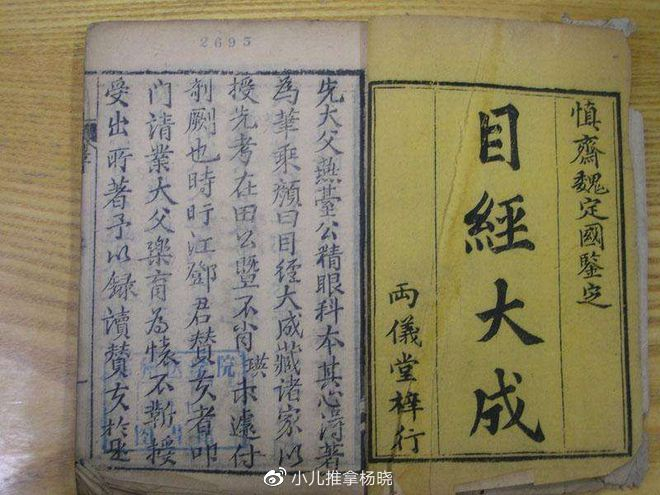 慎齋魏定國鑒定
目經大成
両儀堂梓行
2695
先大父燕臺公精眼科本其心淂著
為華乘顔曰目經大成藏諸家以
授先考在田公暨不肖瑛未遽付
剞劂也時盱江鄧君賛夫者叩
門請業大父樂育為懷不靳授
受出所著予以録讀賛夫於是
院
小儿推拿杨晓